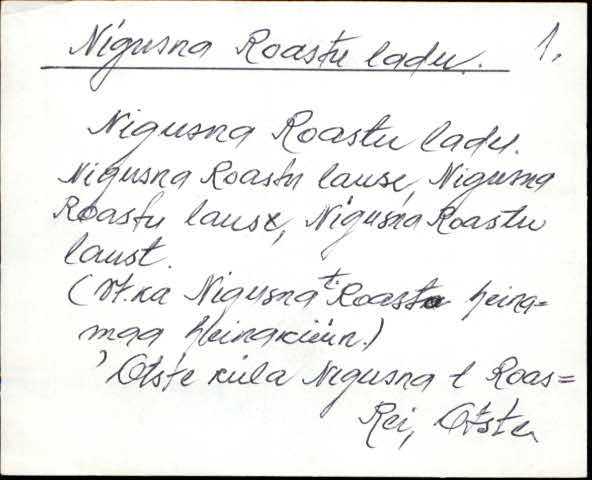 Nigusna Roastu ladu. 1.
Nigusna Roastu ladu.
Nigusna Roastu lause, Nigusna
Roastu lause, Nigusna Roastu
laust.
(vt.ka Nigusna t Roasta heina-
maa heinaküün.)
' Otste küla Nigusna t Roas=
Rei, Otste